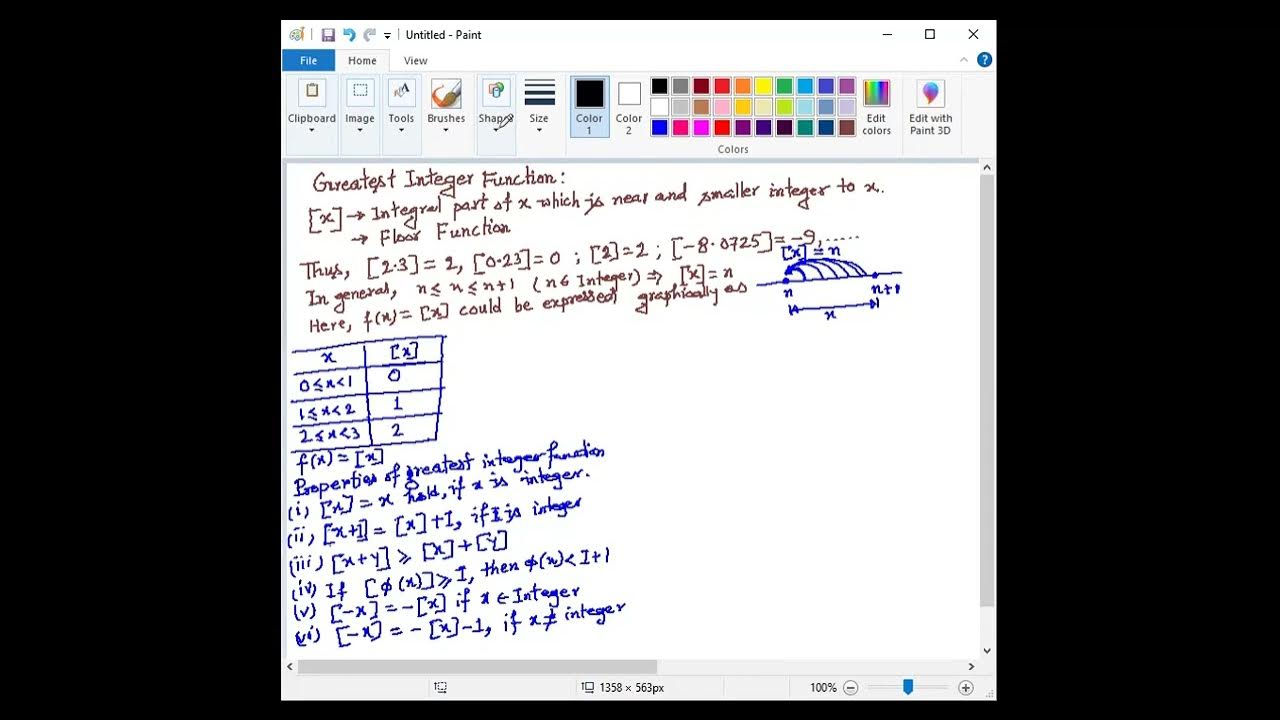 Untitled - Paint
File Home View
Clipboard Image Tools Brushes Shapes Size Color 1 Color 2 Edit colors Edit with Paint 3D
Colors
Greatest Integer Function:
[x] → Integral part of x which is near and smaller integer to x.
→ Floor Function
Thus, [2.3] = 2, [0.23] = 0 ; [2] = 2 ; [-8.0725] = -9, .....
In general, n ≤ x ≤ n+1 (n ∈ Integer) ⇒ [x] = n
Here, f(x) = [x] could be expressed graphically as
[x] = n
n n+1
x
x [x]
0 ≤ x < 1 0
1 ≤ x < 2 1
2 ≤ x < 3 2
f(x) = [x]
Properties of greatest integer function
(i) [x] = x hold, if x is integer.
(ii) [x+I] = [x] + I, if I is integer
(iii) [x+y] ≥ [x] + [y]
(iv) If [φ(x)] ≥ I, then φ(x) < I+1
(v) [-x] = -[x] if x ∈ Integer
(vi) [-x] = -[x] -1, if x ≠ integer
1358 × 563px 100%